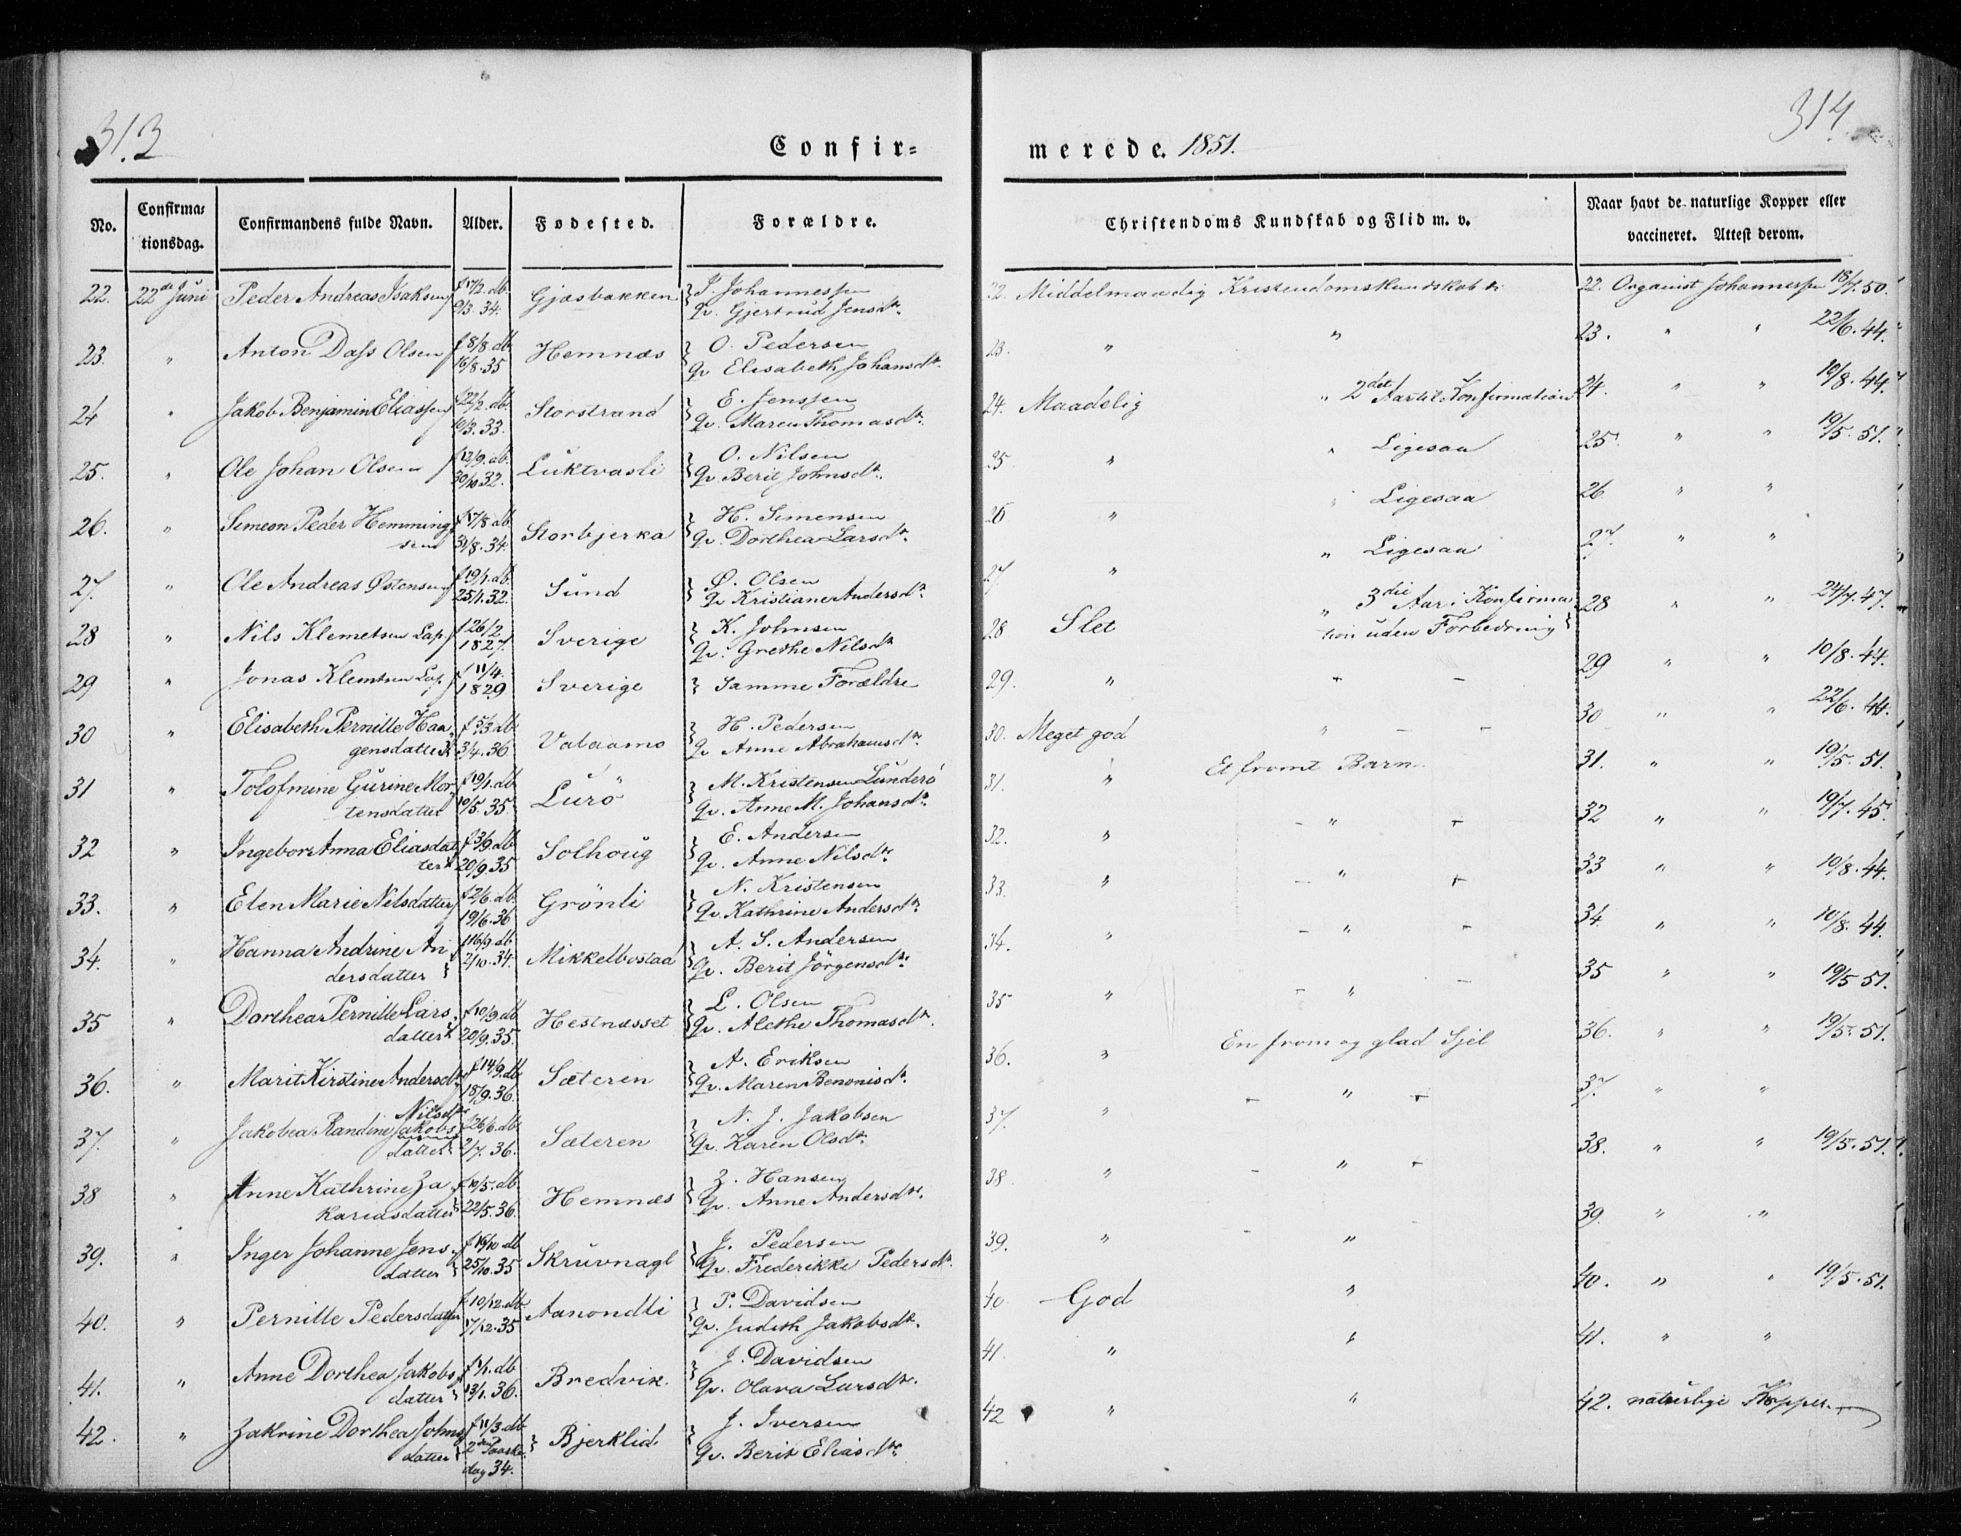 313
314
Confir=
merede. 1851.
No.
Confirma=
tionsdag.
Confirmandens fulde Navn.
Alder.
Fødested.
Forældre.
Christendoms Kundskab og Flid m. v.
Naar havt de naturlige Kopper eller
vaccineret. Attest derom.
22. 22de Juni Peder Andreas Isaksen f 17/2. db. 9/3. 34. Gjæsbakken J. Johannessen Qv. Gjertrud Jensdtr.
23. " Anton Dass Olsen f 8/8 db. 16/8. 35 Hemnæs O. Pedersen Qv Elisabeth Johansdtr.
24 " Jakob Benjamin Eliassen f 22/2. db. 10/3. 33. Storstrand E. Jenssen Qv. Maren Thomasdtr.
25. " Ole Johan Olsen f 12/9. db. 30/10 32. Luktvasli O. Nilsen Qv Berit Johnsdtr.
26. " Simeon Peder Hemming
sen f 17/8 db. 31/8. 34. Storbjerka H. Simensen Qv. Dorthea Larsdtr.
27. " Ole Andreas Østensen f 19/1. db. 25/1. 32. Sund Ø. Olsen Qv Kristiane Andersdtr.
28 " Nils Klemetsen Lap. f 26/2 1827. Sverige K. Johnsen Qv. Grethe Nilsdtr.
29 " Jonas Klemtsen Lap. f 11/4. 1829 Sverige Samme Forældre
30 " Elisabeth Pernille Haa
gensdatter f 5/3. db. 3/4. 36 Valaamo H. Pedersen Qv Anne Abrahamsdtr.
31 " Tolofmine Gurine Mor
tensdatter f 19/1. db 10/5. 35. Lurö M. Kristensen Lunderö Qv. Anne M. Johansdtr.
32 " Ingebor Anna Eliasdat
ter f 3/9 db 20/9. 35 Solhoug E. Andersen Qv. Anne Nilsdtr.
33. " Elen Marie Nilsdatter f 2/6. db. 19/6. 36 Grönli N. Kristensen Qv. Kathrine Andersdtr.
34. " Hanna Andrine An
dersdatter f 16/9 db 2/10. 34. Mikkelbostad A. S. Andersen Qv. Berit Jörgensdtr.
35 " Dorthea Pernille Lars
datter f 10/9. db 20/9. 35. Hestnæsset L. Olsen Qv. Alethe Thomasdtr.
36. " Marit Kirstine Andersdtr f 14/9. db 18/9. 36. Sæteren A. Eriksen Qv. Maren Benonisdtr.
37. " Jakobea Randine Nilsdtr Jakobs
datter f 26/6. db. 2/7. 36. Sæteren N. J. Jakobsen Qv. Karen Olsdtr.
38 " Anne Kathrine Za
kariasdatter f 10/5. db. 22/5. 36. Hemnæs Z. Hansen Qv. Anne Andersdtr.
39. " Inger Johanne Jens
datter f 15/10 db 25/10. 35 Skruvnagl J. Pedersen Qv. Frederikke Pedersdtr.
40. " Pernille Pedersdatter f 10/12. db. 17/12. 35 Aanondli P. Davidsen Qv. Judith Jakobsdtr.
41. " Anne Dorthea Jakobs
datter f 1/1. db 13/1. 36. Bredvik. J. Davidsen Qv. Olava Larsdtr.
42. " Zakrine Dorthea Johns
datter f 11/3. db 2den Paaske dag 34. Bjerklid. J. Iversen Qv. Berit Eliasdtr.
22. Middelmaadig Kristendomskundskab 22. Organist Johannessen 18/7. 50.
23. " " 23. " " 22/6. 44.
24. Maadelig " 2det Aar til Konfirmation 24. " " 10/8. 44.
25 " " Ligesaa 25. " " 19/5. 51.
26 " " Ligesaa 26 " "
27 " " Ligesaa 27. " "
28 Slet " 3die Aar i Konfirma
tion uden Forbedring 28 " " 24/7. 47.
29. " " - 29 " " 10/8. 44.
30. Meget god " - - 30 " " 22/6. 44.
31. " Et fromt Barn 31. " " 19/5. 51.
32. " - " - 32 " " 19/7. 45.
33. " - " - 33 " " 10/8. 44.
34. " - " - 34. " " 10/8. 44.
35 " - " - 35 " " 19/5 51.
36. " En from og glad Sjel 36. " " 19/5. 51.
37. " - " - 37. " "
38 " - " - 38. " " 19/5. 51.
39. " - " 39. " "
40. God " 40. " " 19/5. 51.
41. " " 41. " "
42 " " 42. naturlige Kopper.